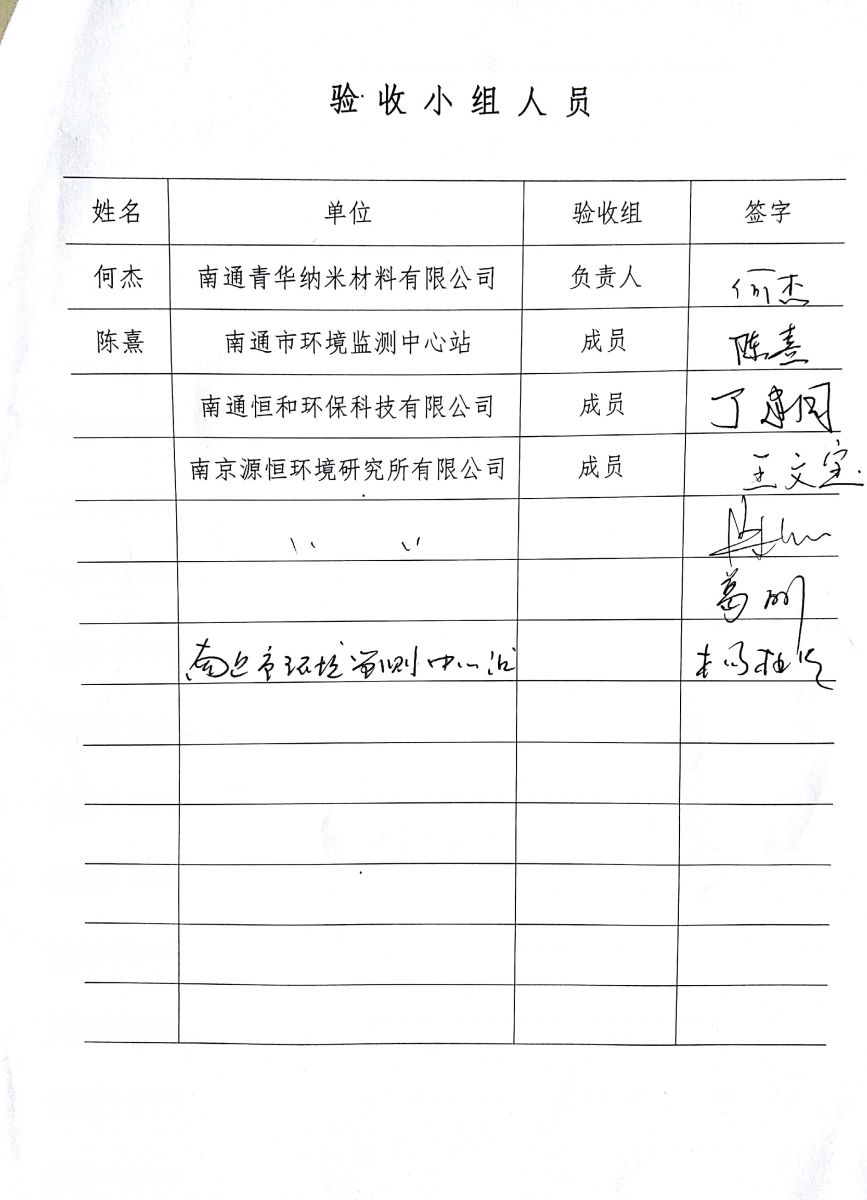 验收小组人员
姓名 单位 验收组 签字
何杰 南通青华纳米材料有限公司 负责人 何杰
陈熹 南通市环境监测中心站 成员 陈熹
南通恒和环保科技有限公司 成员 丁建国
南京源恒环境研究所有限公司 成员 王文宝
葛明
南通市环境监测中心站